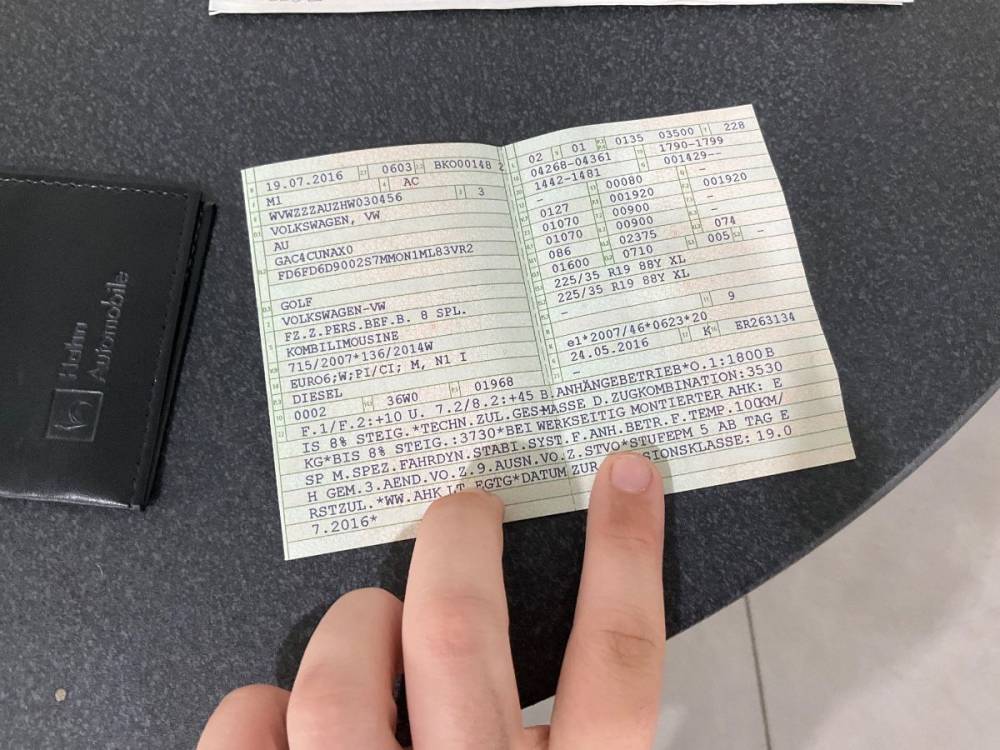 Hahn
Automobile
19.07.2016 0603 BKO00148 2
M1 AC
WVWZZZAUZHW030456 3
VOLKSWAGEN, VW
AU
GAC4CUNAX0
FD6FD6D9002S7MMON1ML83VR2
GOLF
VOLKSWAGEN-VW
FZ.Z.PERS.BEF.B. 8 SPL.
KOMBILIMOUSINE
715/2007*136/2014W
EURO6;W;PI/CI; M, N1 I
DIESEL
0002 36W0 01968
02 01 0135 03500 228
04268-04361 1790-1799
1442-1481 001429--
- 00080 -
0127 001920 001920
01070 00900 -
01070 00900 -
086 02375 074
01600 0710 005 -
225/35 R19 88Y XL
225/35 R19 88Y XL
-
9
e1*2007/46*0623*20
24.05.2016 K ER263134
-
F.1/F.2:+10 U. 7.2/8.2:+45 B.ANHÄNGEBETRIEB*O.1:1800 B
IS 8% STEIG.*TECHN.ZUL.GES-MASSE D.ZUGKOMBINATION:3530
KG*BIS 8% STEIG.:3730*BEI WERKSEITIG MONTIERTER AHK: E
SP M.SPEZ.FAHRDYN.STABI.SYST.F.ANH.BETR.F.TEMP.100KM/
H GEM.3.AEND.VO.Z.9.AUSN.VO.Z.STVO*STUFEPM 5 AB TAG E
RSTZUL.*WW.AHK LT.EGTG*DATUM ZUR SIONSKLASSE: 19.0
7.2016*